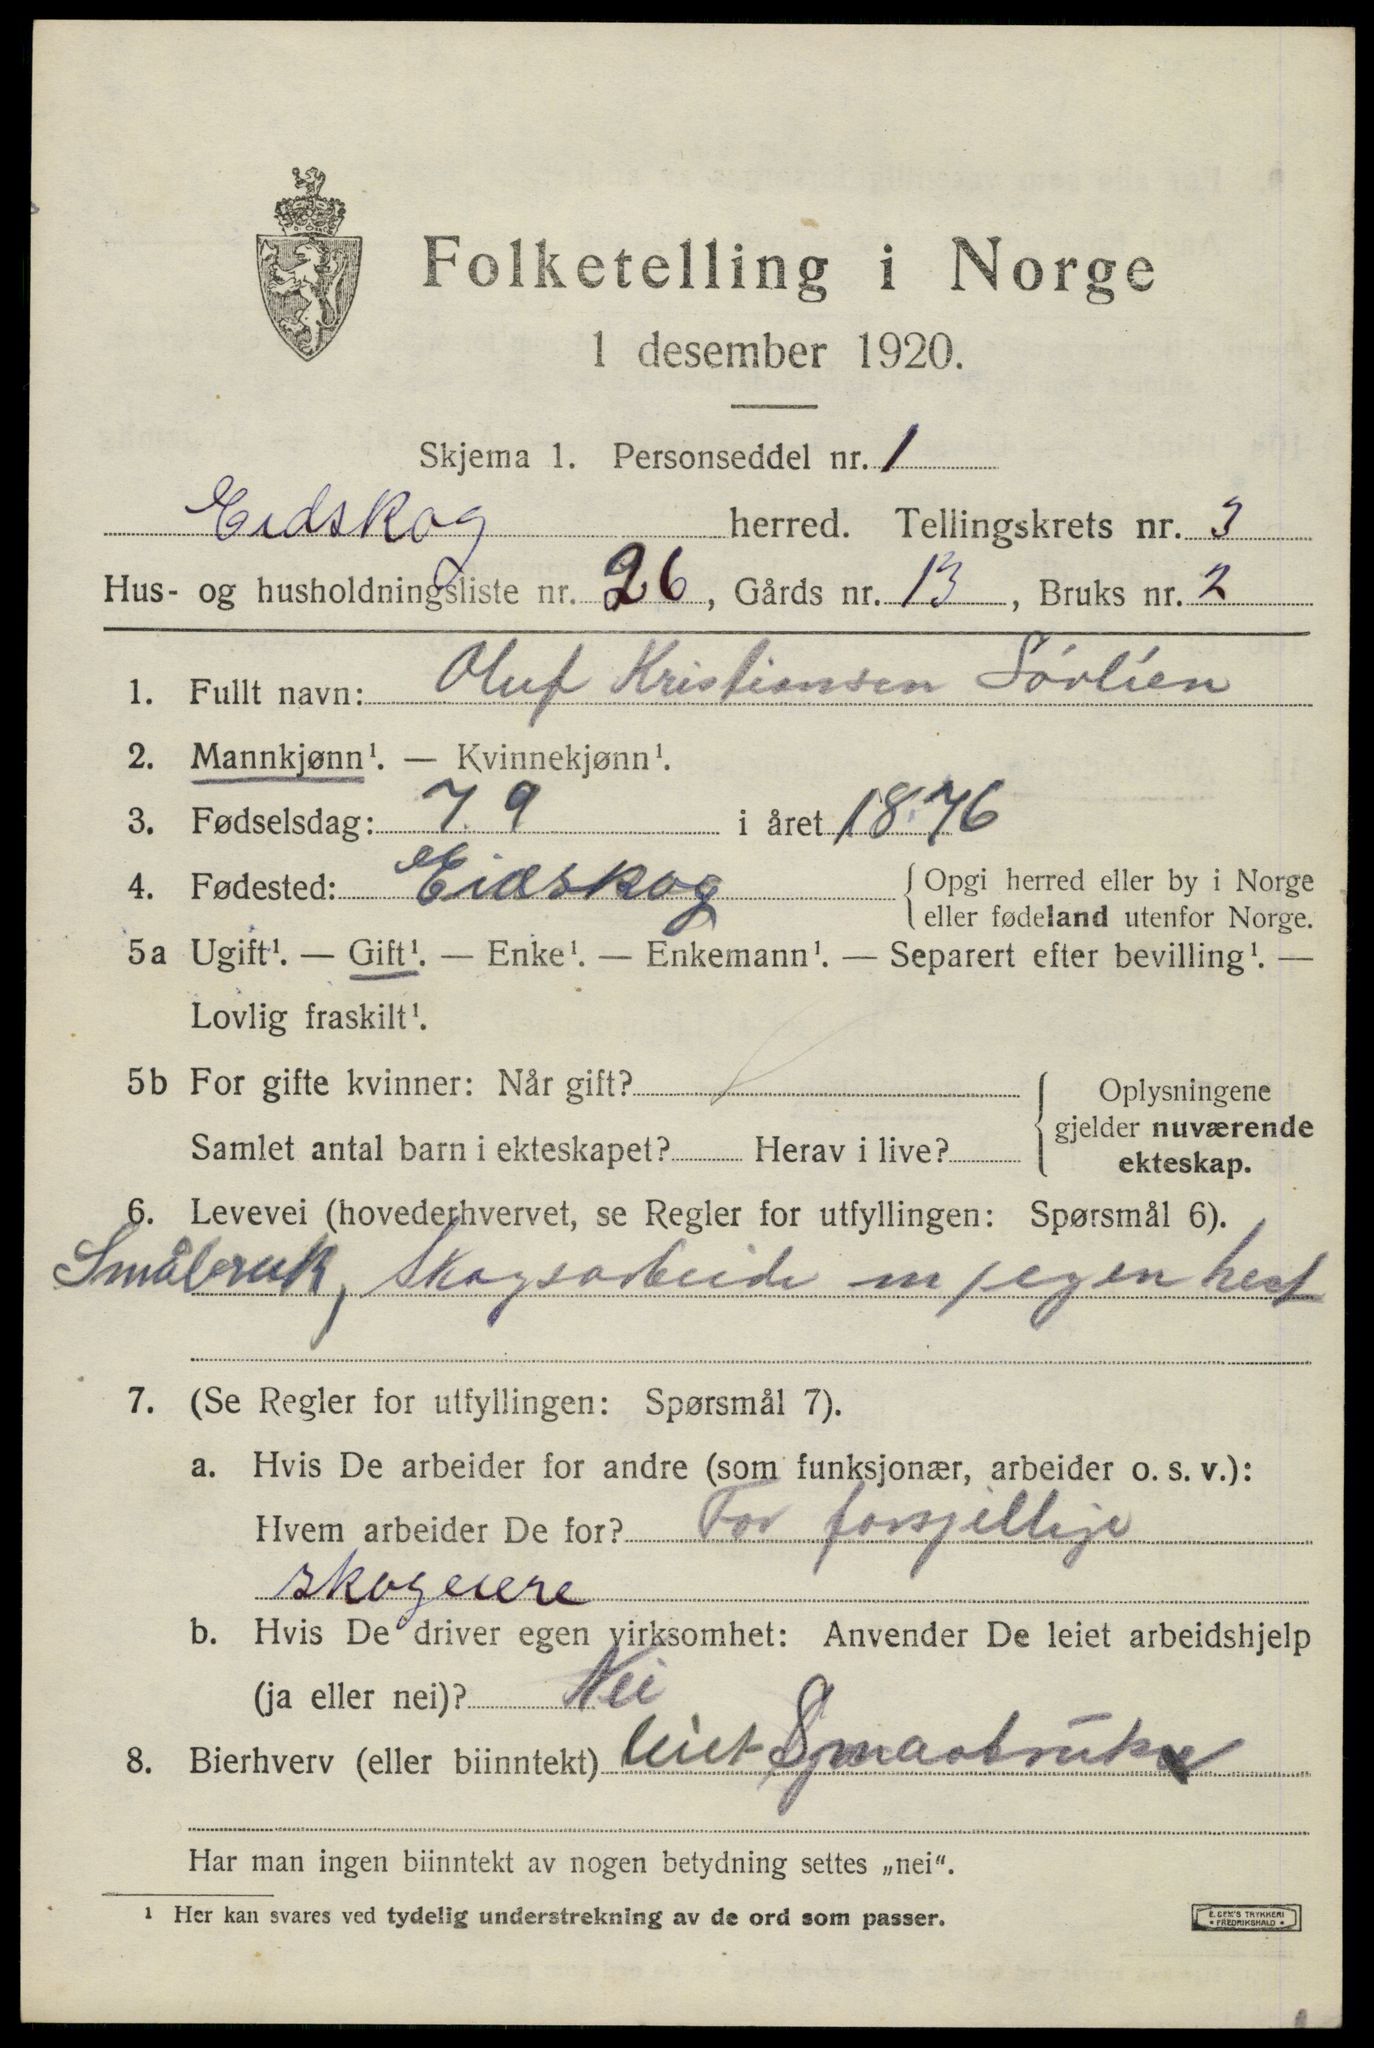 Folketelling i Norge
1 desember 1920.
Skjema 1. Personseddel nr. 1
Eidskog herred. Tellingskrets nr. 3
Hus- og husholdningsliste nr. 26, Gårds nr. 13, Bruks nr. 2
1. Fullt navn: Oluf Kristiansen Sörlien
2. Mannkjønn¹. — Kvinnekjønn¹.
3. Fødselsdag: 7 9 i året 1876
4. Fødested: Eidskog {Opgi herred eller by i Norge
eller fødeland utenfor Norge.
5a Ugift¹. — Gift¹. — Enke¹. — Enkemann¹. — Separert efter bevilling¹. —
Lovlig fraskilt¹.
5b For gifte kvinner: Når gift? {Oplysningene
gjelder nuværende
Samlet antal barn i ekteskapet? Herav i live? ekteskap.
6. Levevei (hovederhvervet, se Regler for utfyllingen: Spørsmål 6).
Småbruk, Skogsarbeide m/egen hest
7. (Se Regler for utfyllingen: Spørsmål 7).
a. Hvis De arbeider for andre (som funksjonær, arbeider o. s. v.):
Hvem arbeider De for? For forsjellige
skogeiere
b. Hvis De driver egen virksomhet: Anvender De leiet arbeidshjelp
(ja eller nei)? Nei
8. Bierhverv (eller biinntekt) leiet Smaabruk
Har man ingen biinntekt av nogen betydning settes „nei“.
¹ Her kan svares ved tydelig understrekning av de ord som passer.
E. SEM'S TRYKKERI
• FREDRIKSHALD •